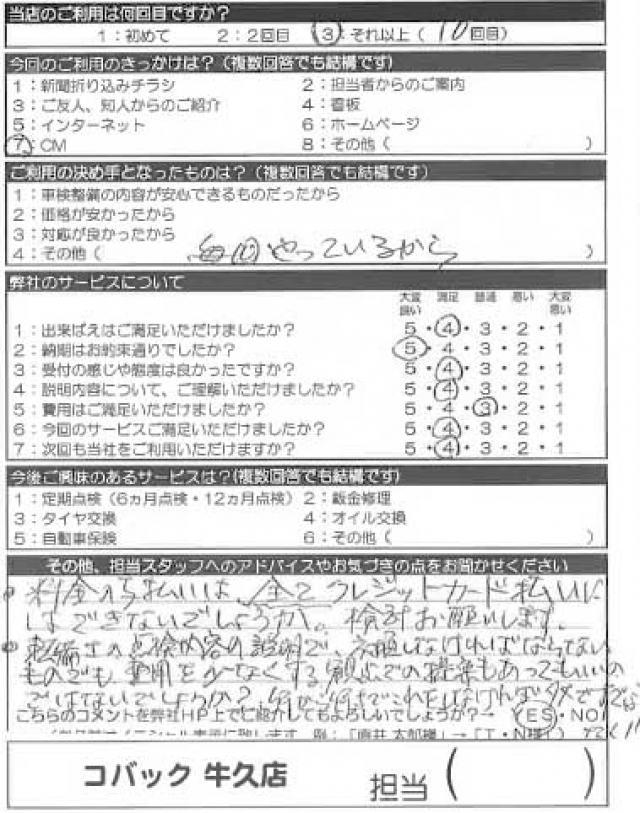 当店のご利用は何回目ですか？
1：初めて 2：2回目 3：それ以上（10回目）
今回のご利用のきっかけは？（複数回答でも結構です）
1：新聞折り込みチラシ 2：担当者からのご案内
3：ご友人、知人からのご紹介 4：看板
5：インターネット 6：ホームページ
7：CM 8：その他（ ）
ご利用の決め手となったものは？（複数回答でも結構です）
1：車検整備の内容が安心できるものだったから
2：価格が安かったから
3：対応が良かったから
4：その他（ 毎回やっているから ）
弊社のサービスについて
大変良い 満足 普通 悪い 大変悪い
1：出来ばえはご満足いただけましたか？ 5・4・3・2・1
2：納期はお約束通りでしたか？ 5・4・3・2・1
3：受付の感じや態度は良かったですか？ 5・4・3・2・1
4：説明内容について、ご理解いただけましたか？ 5・4・3・2・1
5：費用はご満足いただけましたか？ 5・4・3・2・1
6：今回のサービスご満足いただけましたか？ 5・4・3・2・1
7：次回も当社をご利用いただけますか？ 5・4・3・2・1
今後ご興味のあるサービスは？（複数回答でも結構です）
1：定期点検（6ヵ月点検・12ヵ月点検） 2：鈑金修理
3：タイヤ交換 4：オイル交換
5：自動車保険 6：その他（ ）
その他、担当スタッフへのアドバイスやお気づきの点をお聞かせください
料金の支払いは、全てクレジットカード払いに
はできないでしょうか。検討お願いします。
の点検内容の説明で、交換しなければならない
ものでも費用を少なくする観点での提案もあってもいいの
ではないでしょうか？
こちらのコメントを弊社HP上でご紹介してもよろしいでしょうか？→ YES・NO
コバック 牛久店 担当（ ）